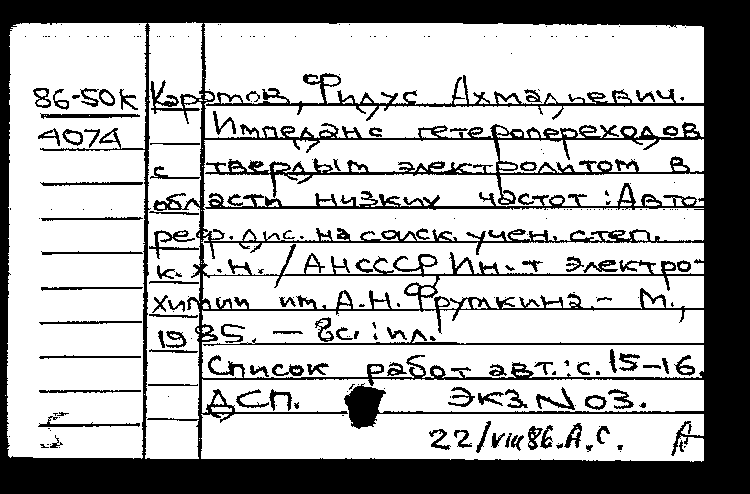 86-50к Каратов, Филус Ахмадиевич.
4074 Импеданс гетеропереходов
с твердым электролитом в
области низких частот : Авто-
реф. дис. на соиск. учен. степ.
к. х. н. / АН СССР, Ин-т электро-
химии им. А.Н. Фрумкина. - М.,
1985. — 8с. : ил.
Список работ авт.: с. 15-16.
ДСП. ЭКЗ. N 03.
22/viii86. А.С.